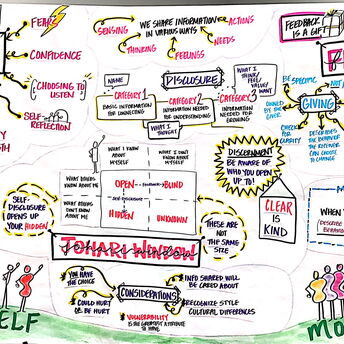 FEAR
CONFIDENCE
CHOOSING TO
LISTEN
SELF-
REFLECTION
WE SHARE INFORMATION
IN VARIOUS WAYS
SENSING
THINKING
FEELINGS
NEEDS
ACTIONS
FEEDBACK
IS A GIFT
DISCLOSURE
NAME
CATEGORY 1
BASIC INFORMATION
FOR CONNECTING
CATEGORY 2
INFORMATION NEEDED
FOR UNDERSTANDING
CATEGORY 3
INFORMATION
NEEDED FOR
GROWING
WHAT I
THINK/
FEEL/
VALUE/
WANT
WHAT I
THOUGHT
BE SPECIFIC
NOT
OWNED BY THE
GIVER
GIVING
CHECK FOR
CLARITY
DESCRIBES THE
BEHAVIOR THE
RECEIVER CAN
CHOOSE
TO CHANGE
WHAT I KNOW
ABOUT
MYSELF
WHAT I DON'T
KNOW ABOUT
MYSELF
WHAT OTHERS
KNOW ABOUT ME
WHAT OTHERS
DON'T KNOW
ABOUT ME
OPEN
FEEDBACK
BLIND
SELF-DISCLOSURE
HIDDEN
UNKNOWN
SELF-
DISCLOSURE
OPENS UP
YOUR
HIDDEN
DISCERNMENT
BE AWARE OF
WHO YOU OPEN
UP TO!
THESE ARE
NOT THE
SAME SIZE
CLEAR
IS
KIND
WHEN
JOHARI WINDOW
YOU HAVE
THE CHOICE
COULD HURT
OR BE HURT
CONSIDERATIONS
INFO SHARED WILL
BE CARED ABOUT
RECOGNIZE STYLE
CULTURAL DIFFERENCES
VULNERABILITY
IS THE GREATEST ATTRIBUTE
TO HAVE
ELF
MO